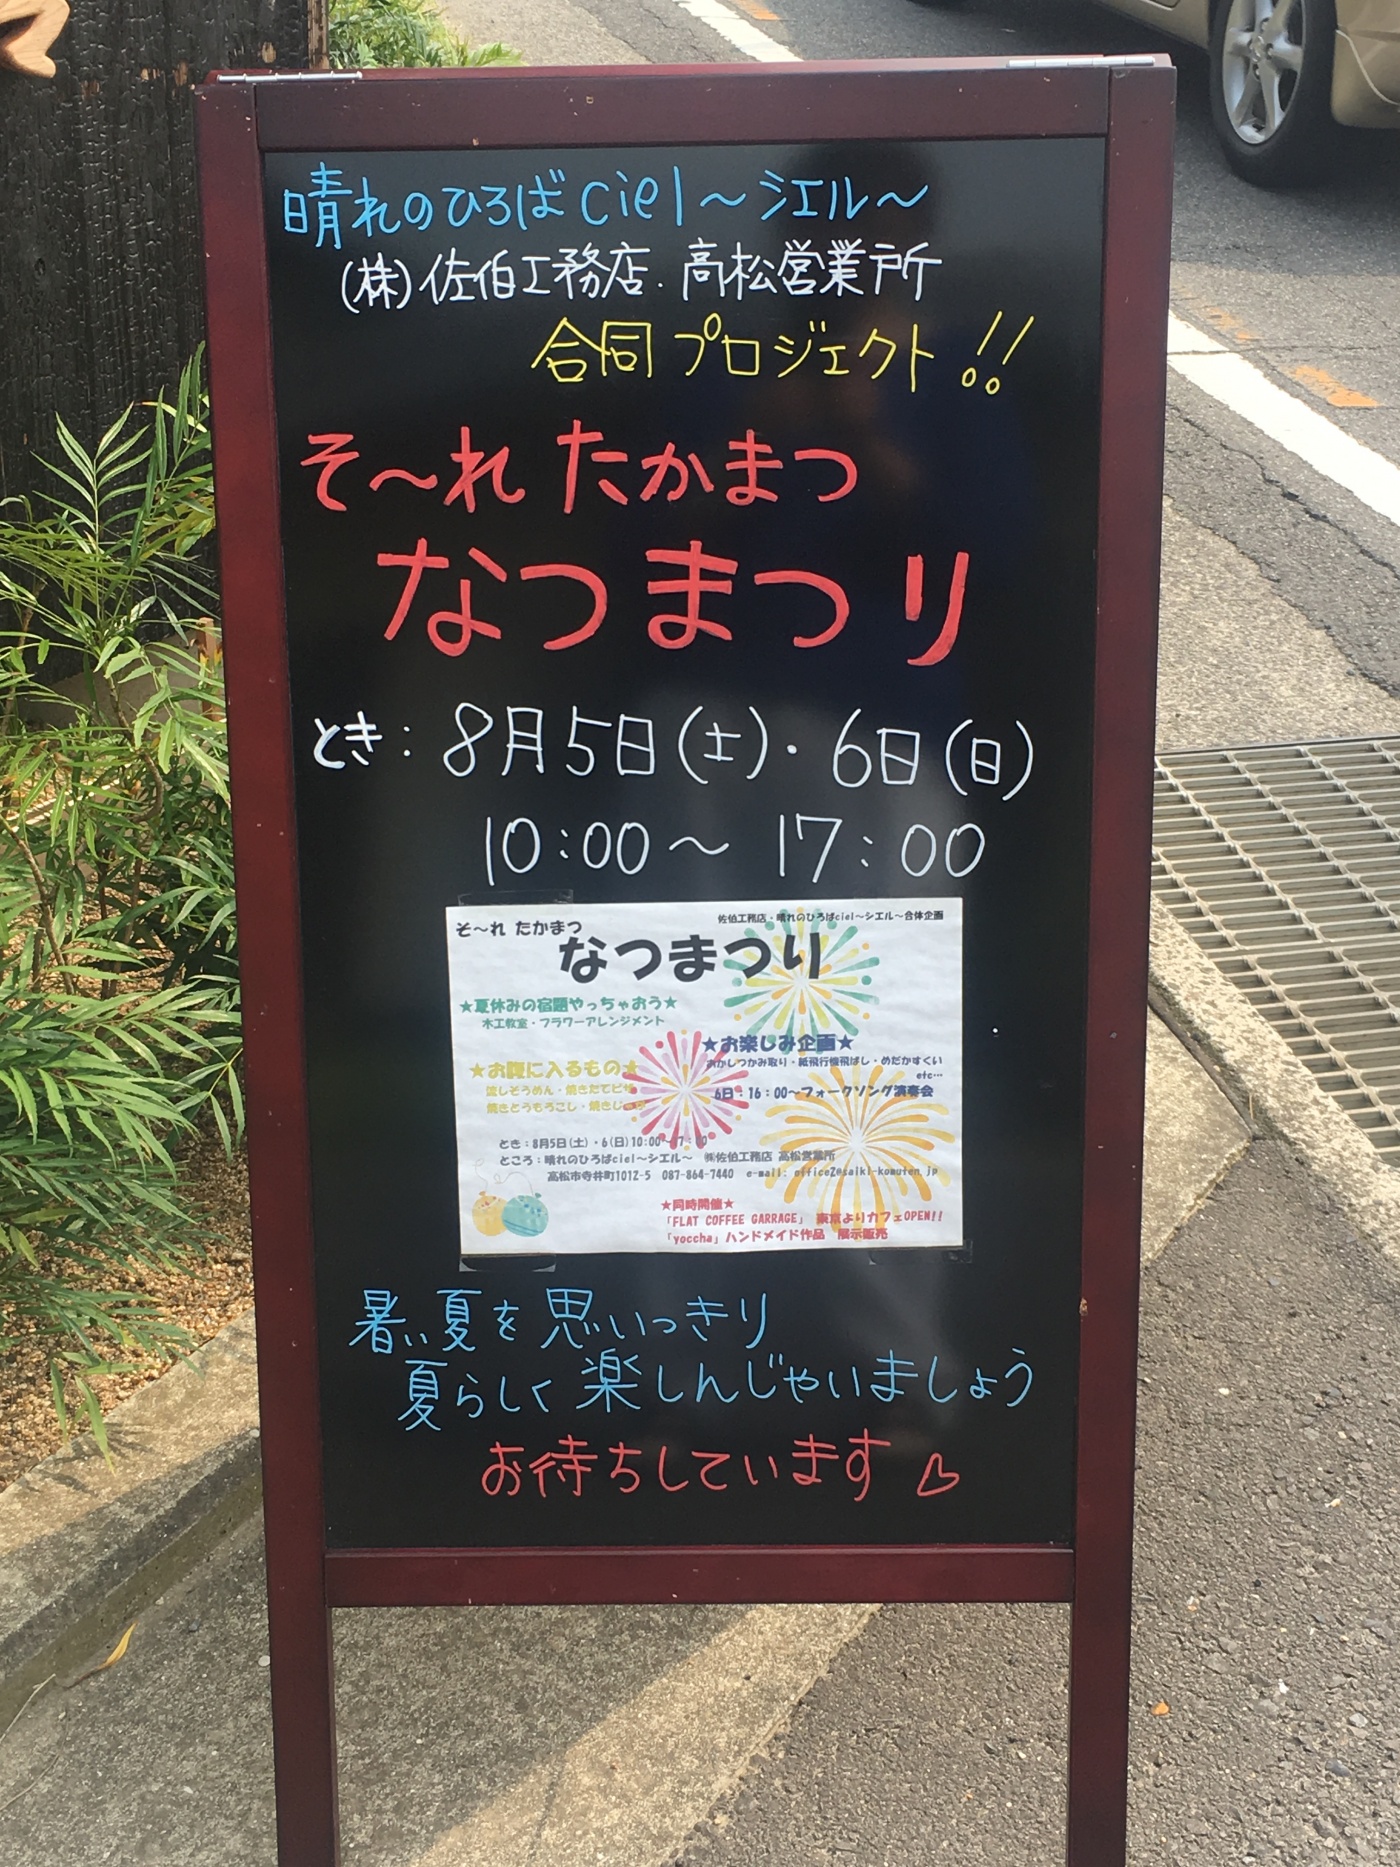 晴れのひろばciel～シエル～
(株)佐伯工務店.高松営業所
合同プロジェクト!!
そ～れ たかまつ
なつまつり
とき:8月5日(土)・6日(日)
10:00～17:00
そ～れ たかまつ
佐伯工務店・晴れのひろばciel～シエル～合体企画
なつまつり
★夏休みの宿題やっちゃおう★
木工教室・フラワーアレンジメント
★お腹に入るもの★
流しそうめん・焼きたてピザ
焼きとうもろこし・焼き
★お楽しみ企画★
おかしつかみ取り・紙飛行機飛ばし・めだかすくい
etc…
6日:16:00～フォークソング演奏会
とき:8月5日(土)・6(日)10:00～17:00
ところ:晴れのひろばciel～シエル～ ㈱佐伯工務店 高松営業所
高松市寺井町1012-5 087-864-7440 e-mail: office2@saiki-komuten.jp
★同時開催★
「FLAT COFFEE GARRAGE」 東京よりカフェOPEN!!
「yoccha」ハンドメイド作品 展示販売
暑い夏を思いっきり
夏らしく楽しんじゃいましょう
お待ちしています♡